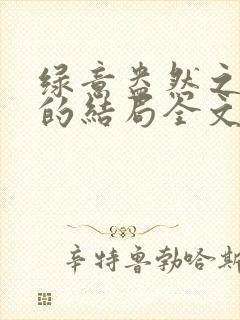 绿意盎然之
的结局全文
辛特鲁勃哈斯